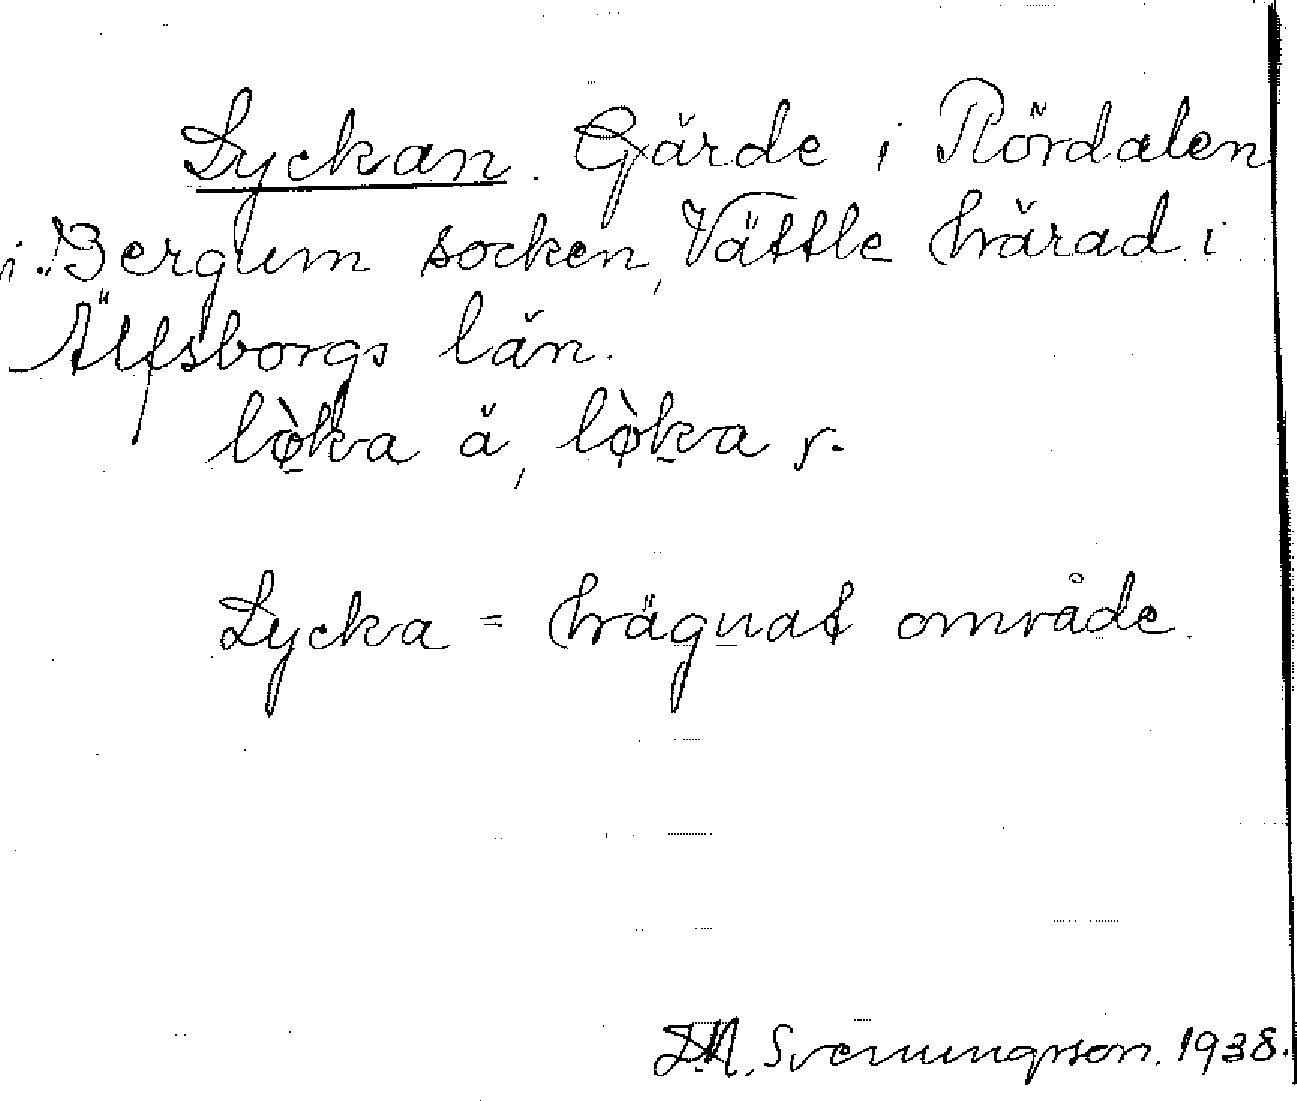 Lyckan. Gärde i Rördalen
i Bergum socken, Vättle härad i
Älfsborgs län.
lø̀ka ä, lø̀ka r.
Lycka = hägnat område.
Svenungsson. 1938.